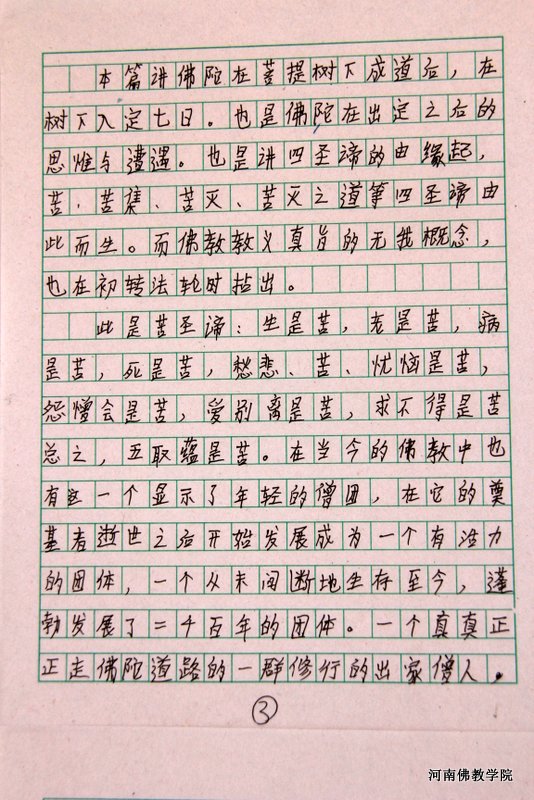 本篇讲佛陀在菩提树下成道后，在
树下入定七日。也是佛陀在出定之后的
思惟与遭遇。也是讲四圣谛的由缘起，
苦、苦集、苦灭、苦灭之道等四圣谛由
此而生。而佛教教义真旨的无我概念，
也在初转法轮时拈出。
此是苦圣谛：生是苦，老是苦，病
是苦，死是苦，愁悲、苦、忧恼是苦，
怨憎会是苦，爱别离是苦，求不得是苦
总之，五取蕴是苦。在当今的佛教中也
有这一个显示了年轻的僧团，在它的奠
基者逝世之后开始发展成为一个有活力
的团体，一个从未间断地生存至今，蓬
勃发展了二千百年的团体。一个真真正
正走佛陀道路的一群修行的出家僧人。
③
河南佛教学院